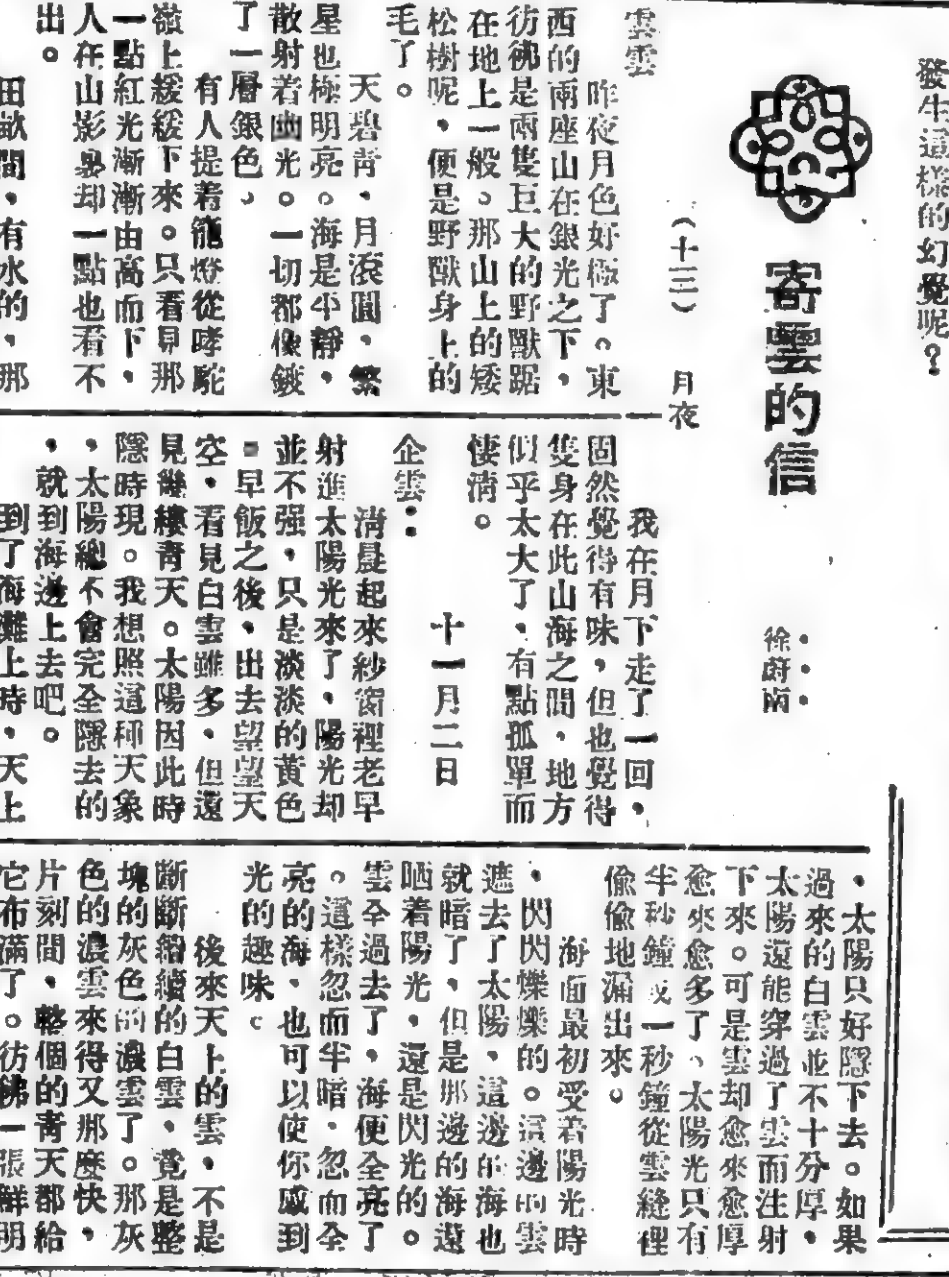 發生這樣的幻覺呢？
寄雲的信
徐蔚南
（十三）　月夜
雲雲
昨夜月色好極了。東
西的兩座山在銀光之下，
彷彿是兩隻巨大的野獸踞
在地上一般。那山上的矮
松樹呢，便是野獸身上的
毛了。
天碧青，月滾圓，繁
星也極明亮。海是平靜，
散射着幽光。一切都像鍍
了一層銀色。
有人提着籠燈從哮駝
嶺上緩緩下來。只看見那
一點紅光漸漸由高而下，
人在山影裏却一點也看不
出。
田畝間，有水的，那
我在月下走了一回，
固然覺得有味，但也覺得
隻身在此山海之間，地方
似乎太大了，有點孤單而
悽清。
十一月二日
企雲：
清晨起來紗窗裡老早
射進太陽光來了，陽光却
並不强，只是淡淡的黃色
。早飯之後，出去望望天
空，看見白雲雖多，但還
見幾縷青天。太陽因此時
隱時現。我想照這種天象
，太陽總不會完全隱去的
，就到海邊上去吧。
到了海灘上時，天上
，太陽只好隱下去。如果
過來的白雲並不十分厚，
太陽還能穿過了雲而注射
下來。可是雲却愈來愈厚
愈來愈多了、太陽光只有
半秒鐘或一秒鐘從雲縫裡
偷偷地漏出來。
海面最初受着陽光時
，閃閃爍爍的。這邊的雲
遮去了太陽，這邊的海也
就暗了，但是那邊的海還
晒着陽光，還是閃光的。
雲全過去了，海便全亮了
。這樣忽而半暗，忽而全
亮的海，也可以使你感到
光的趣味。
後來天上的雲，不是
斷斷續續的白雲，竟是整
塊的灰色的濃雲了。那灰
色的濃雲來得又那麽快，
片刻間，整個的青天都給
它布滿了。彷彿一張鮮明